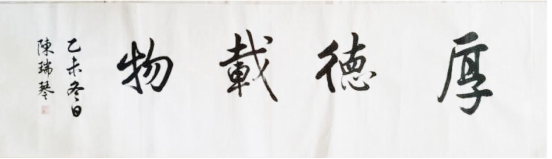 厚德載物
乙未冬日
陳瑞琴